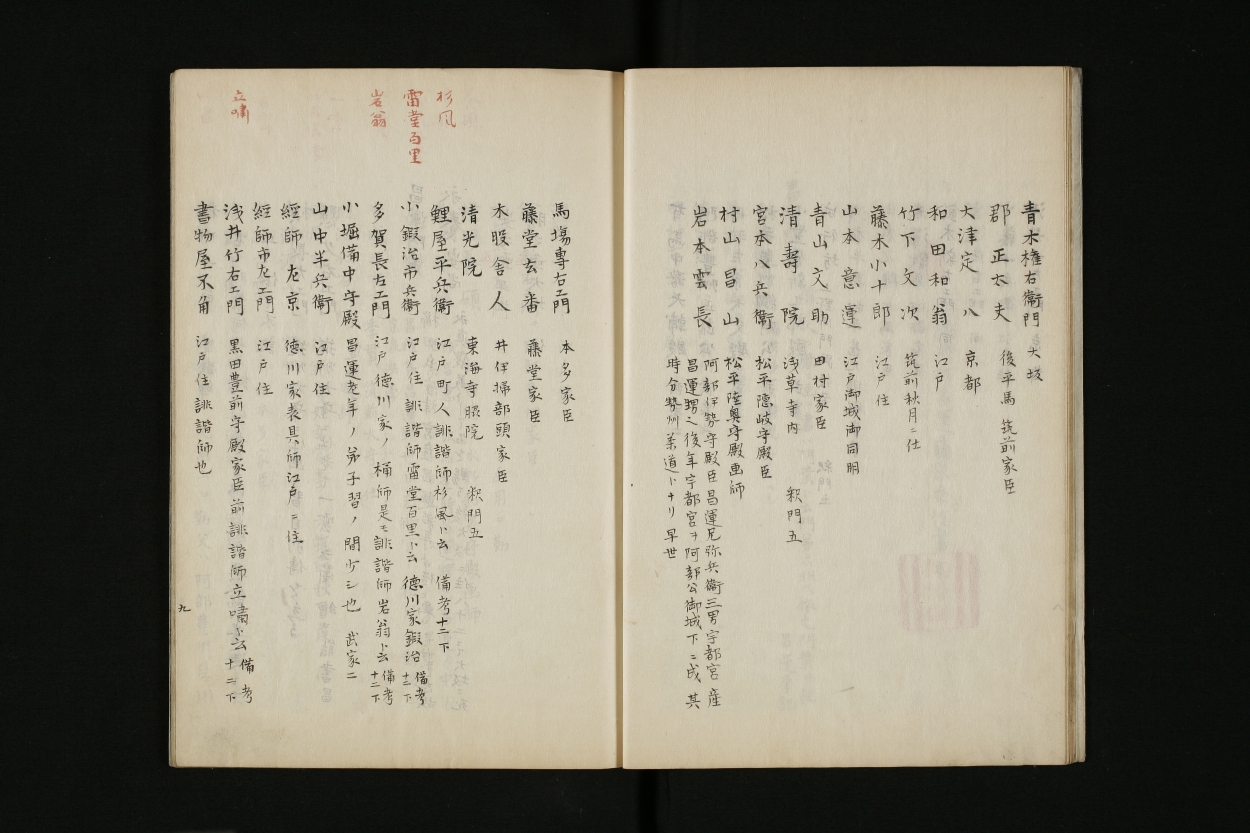 青木権右衛門 大坂
郡正太夫 後平馬 筑前家臣
大津定八 京都
和田和翁 江戸
竹下文次 筑前秋月ニ仕
藤木小十郎 江戸住
山本意運 江戸御城御同朋
青山文助 田村家臣
清寿院 浅草寺内 釈門五
宮本八兵衛 松平隠岐守殿臣
村山昌山 松平陸奥守殿画師
岩本雲長 阿部伊勢守殿臣昌運兄弥兵衛三男宇都宮産
昌運甥之後年宇都宮ヲ阿部公御城下ニ成其
時分勢州 道トナリ早世
馬場専右エ門 本多家臣
藤堂玄番 藤堂家臣
木股舎人 井伊掃部頭家臣
清光院 東海寺 院 釈門五
杉風
鯉屋平兵衛 江戸町人誹諧師杉風ト云 備考十二下
雷堂百里
小鍛治市兵衛 江戸住誹諧師雷堂百黒ト云 徳川家鍛治 備考十二下
岩翁
多賀長左エ門 江戸徳川家ノ桶師是モ誹諧師岩翁ト云 備考十二下
小堀備中守殿 昌運老年ノ弟子習ノ間少シ也 武家二
山中半兵衛 江戸住
經師左京 徳川家表具師江戸ニ住
經師市左エ門 江戸住
立嘯
浅井竹右エ門 黒田豊前守殿家臣前誹諧師立嘯ト云 備考十二下
書物屋不角 江戸住誹諧師也
九